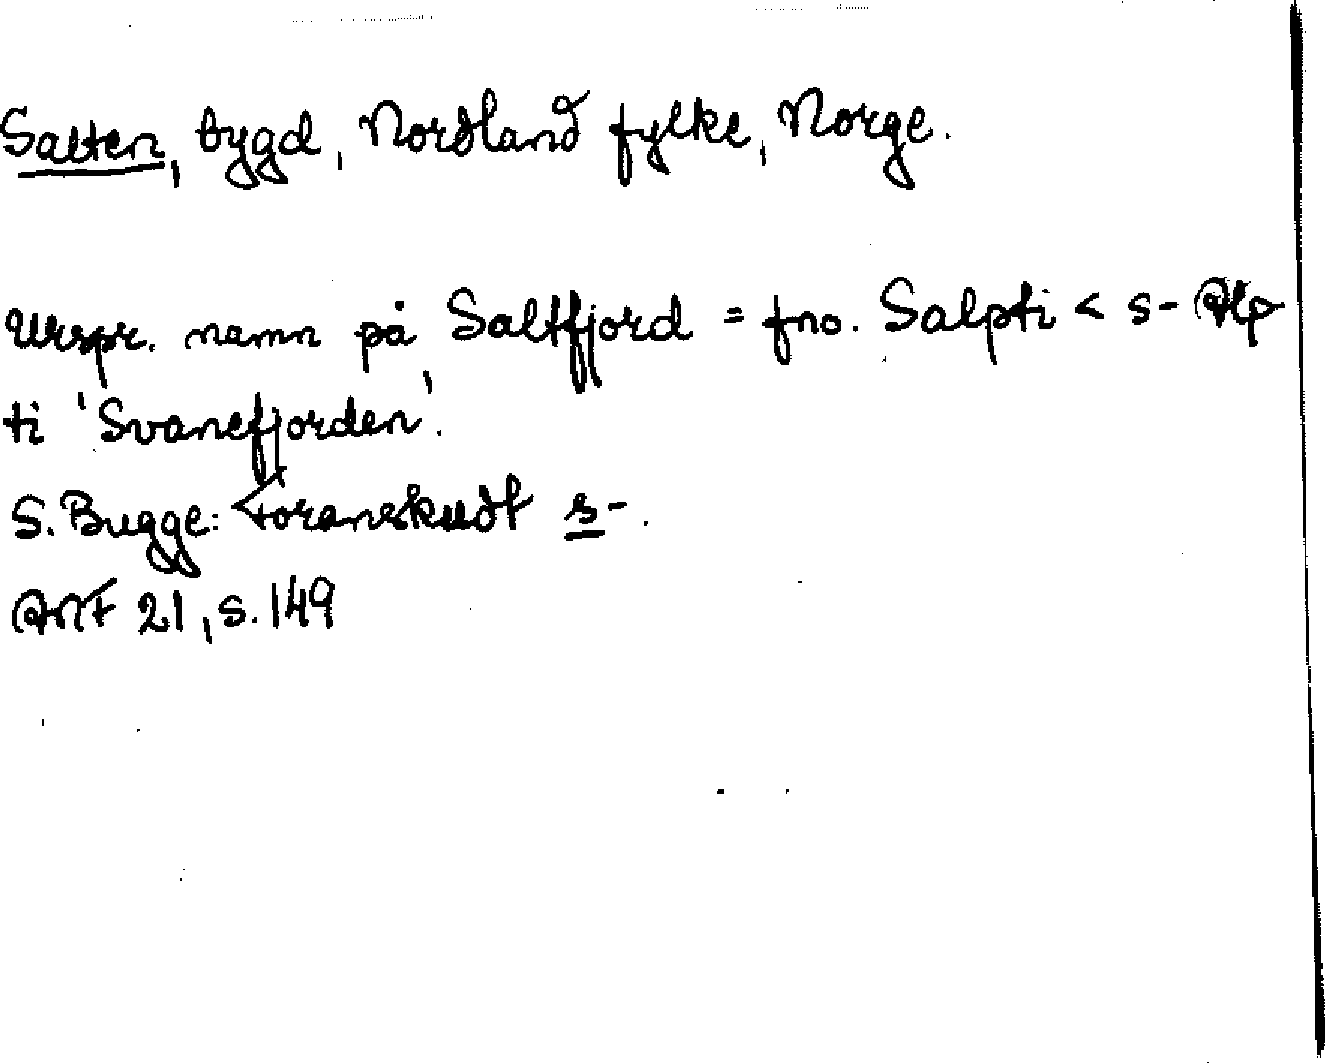 Salten, bygd, Nordland fylke, Norge.
Urspr. namn på Saltfjord = fno. Salpti < s- Alp
ti 'Svanefjorden'.
S. Bugge: Foranskudt s-.
ANF 21, s. 149